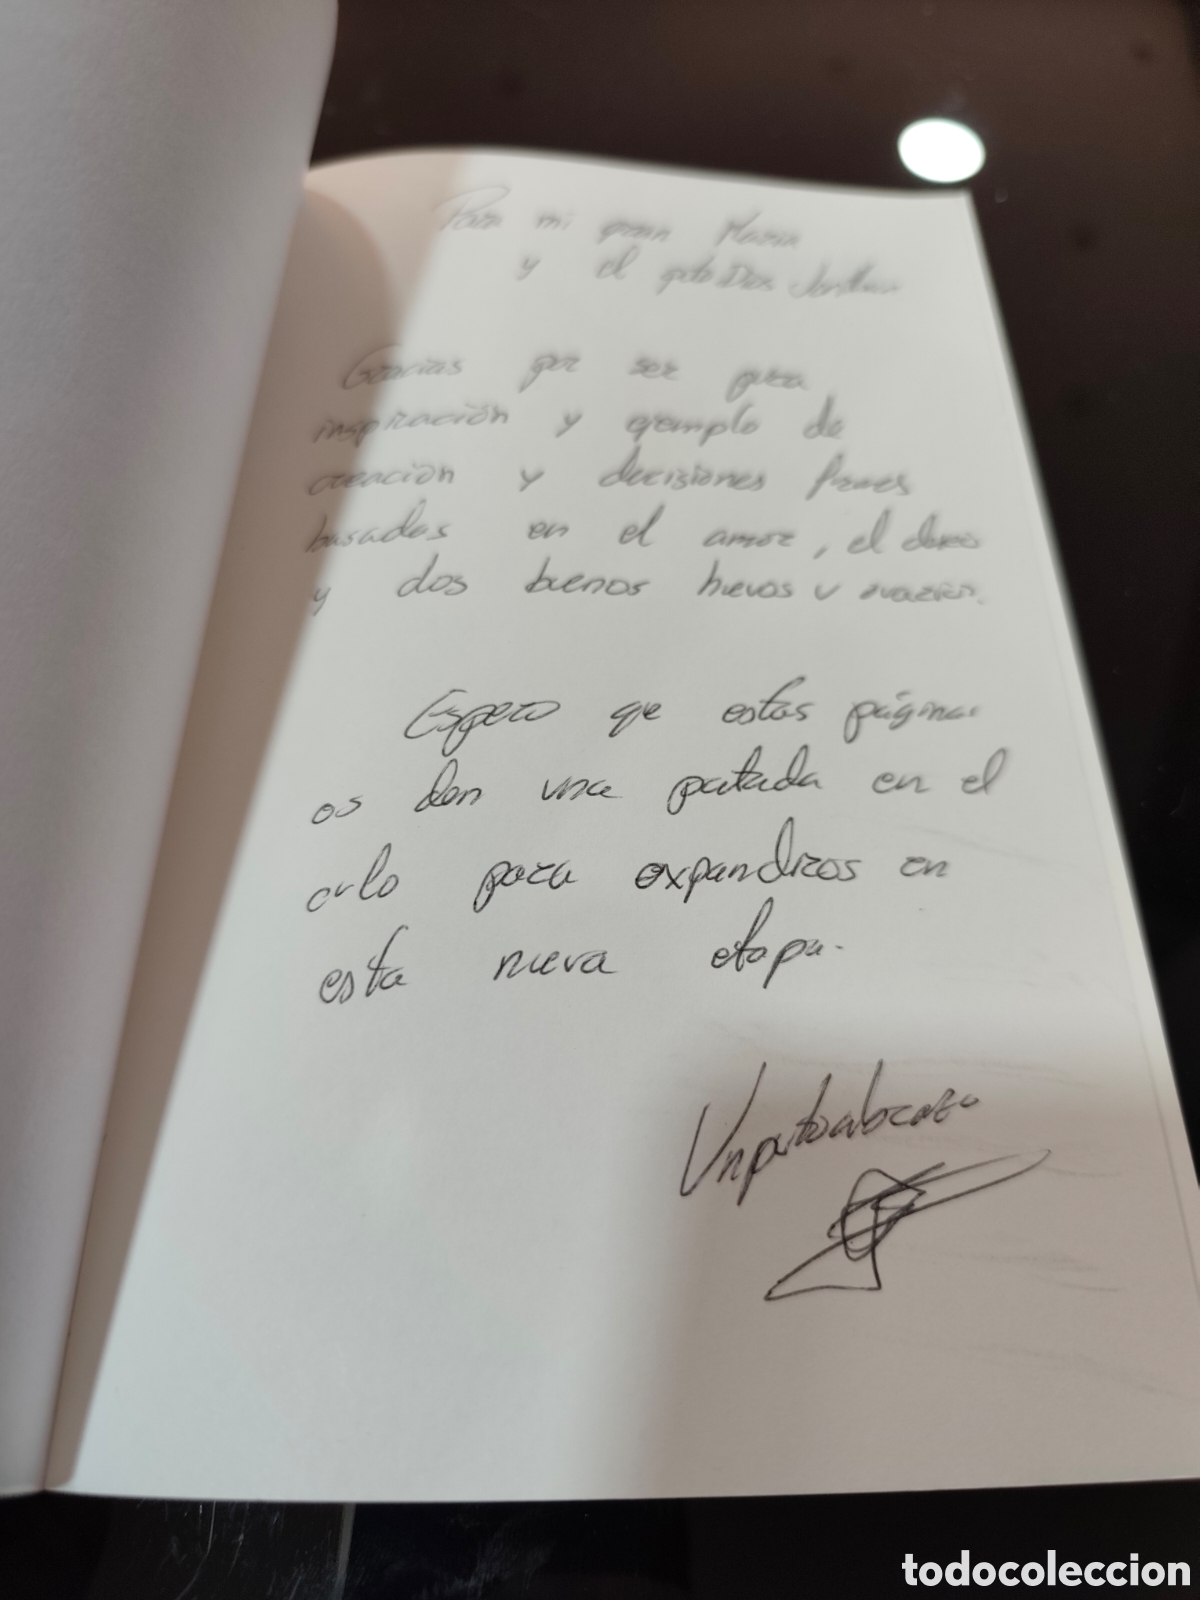 Para mi gran Maria
y el puto Dios Jonathan
Gracias por ser pura
inspiración y ejemplo de
creación y decisiones
basadas en el amor, el deseo
y dos buenos huevos u ovarios.
Espero que estas páginas
os den una patada en el
culo para expandiros en
esta nueva etapa.
Un puto abrazo
todocoleccion